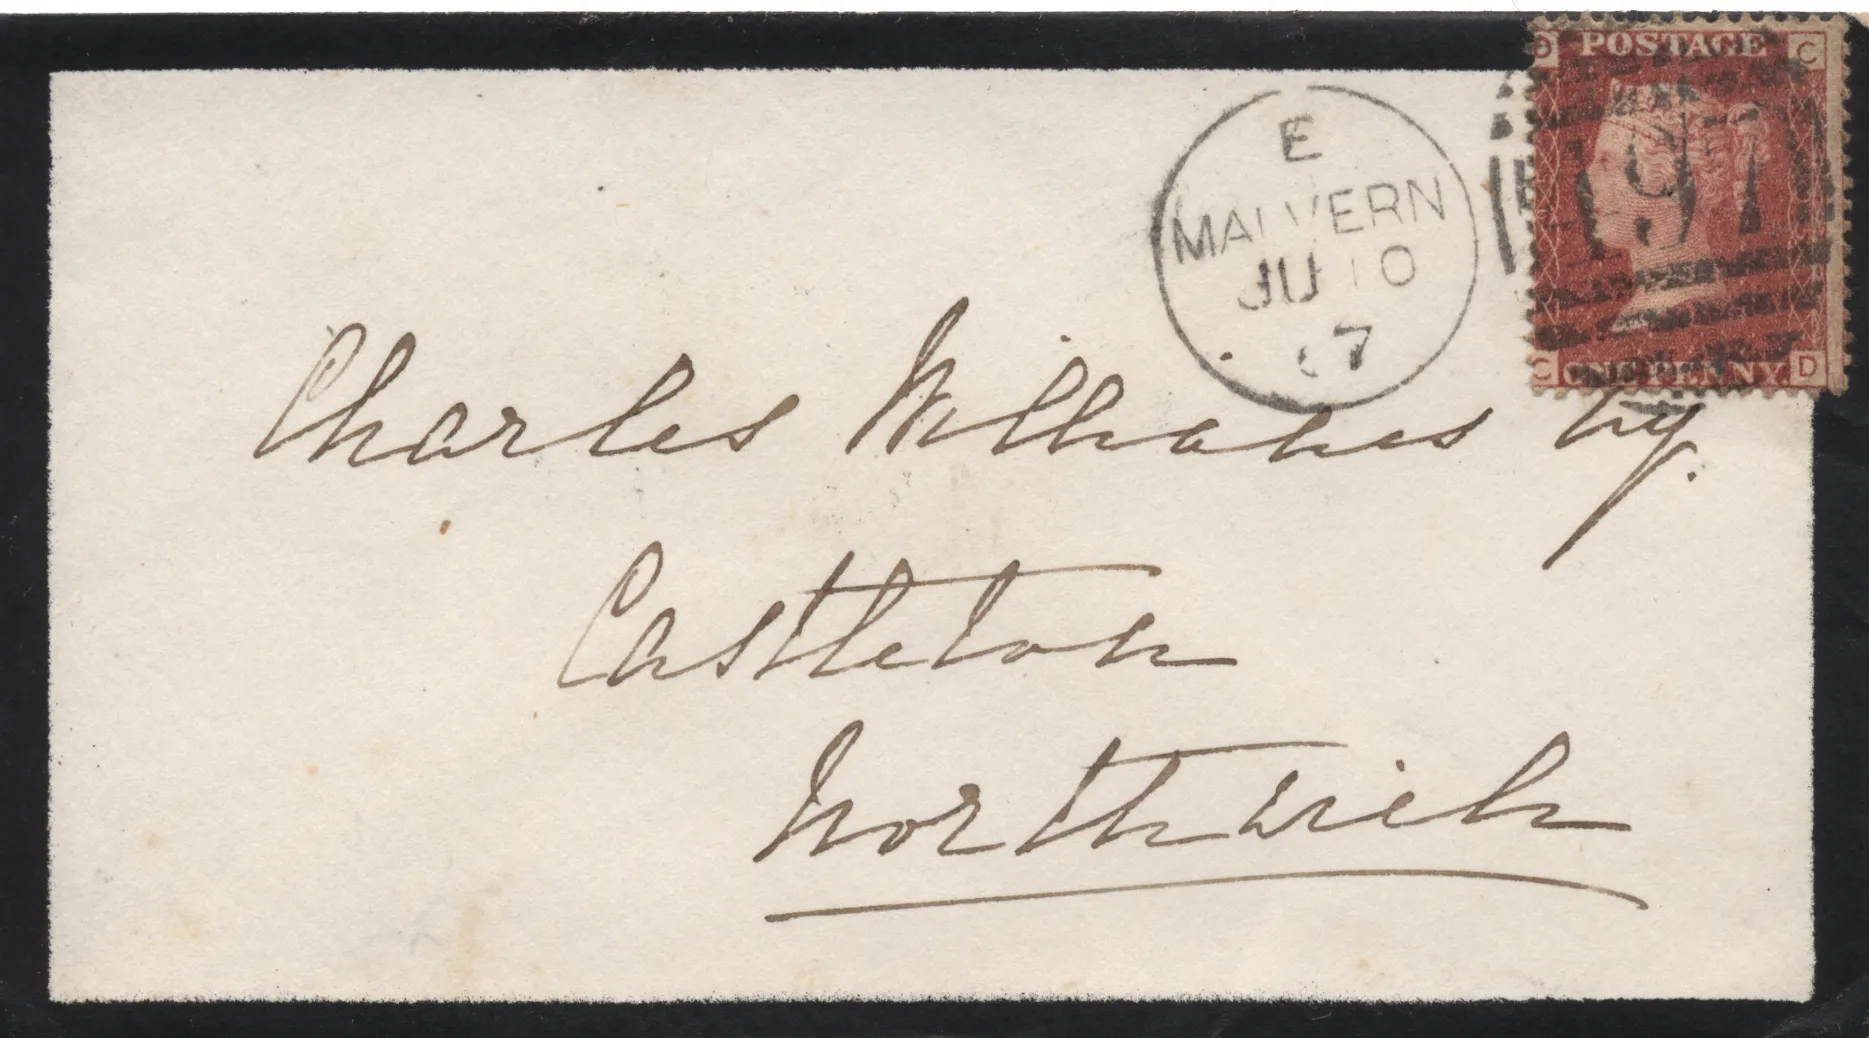 D POSTAGE C
E
MALVERN
JU 10
67
497
C ONE PENNY D
Charles
Castleton
Northwich